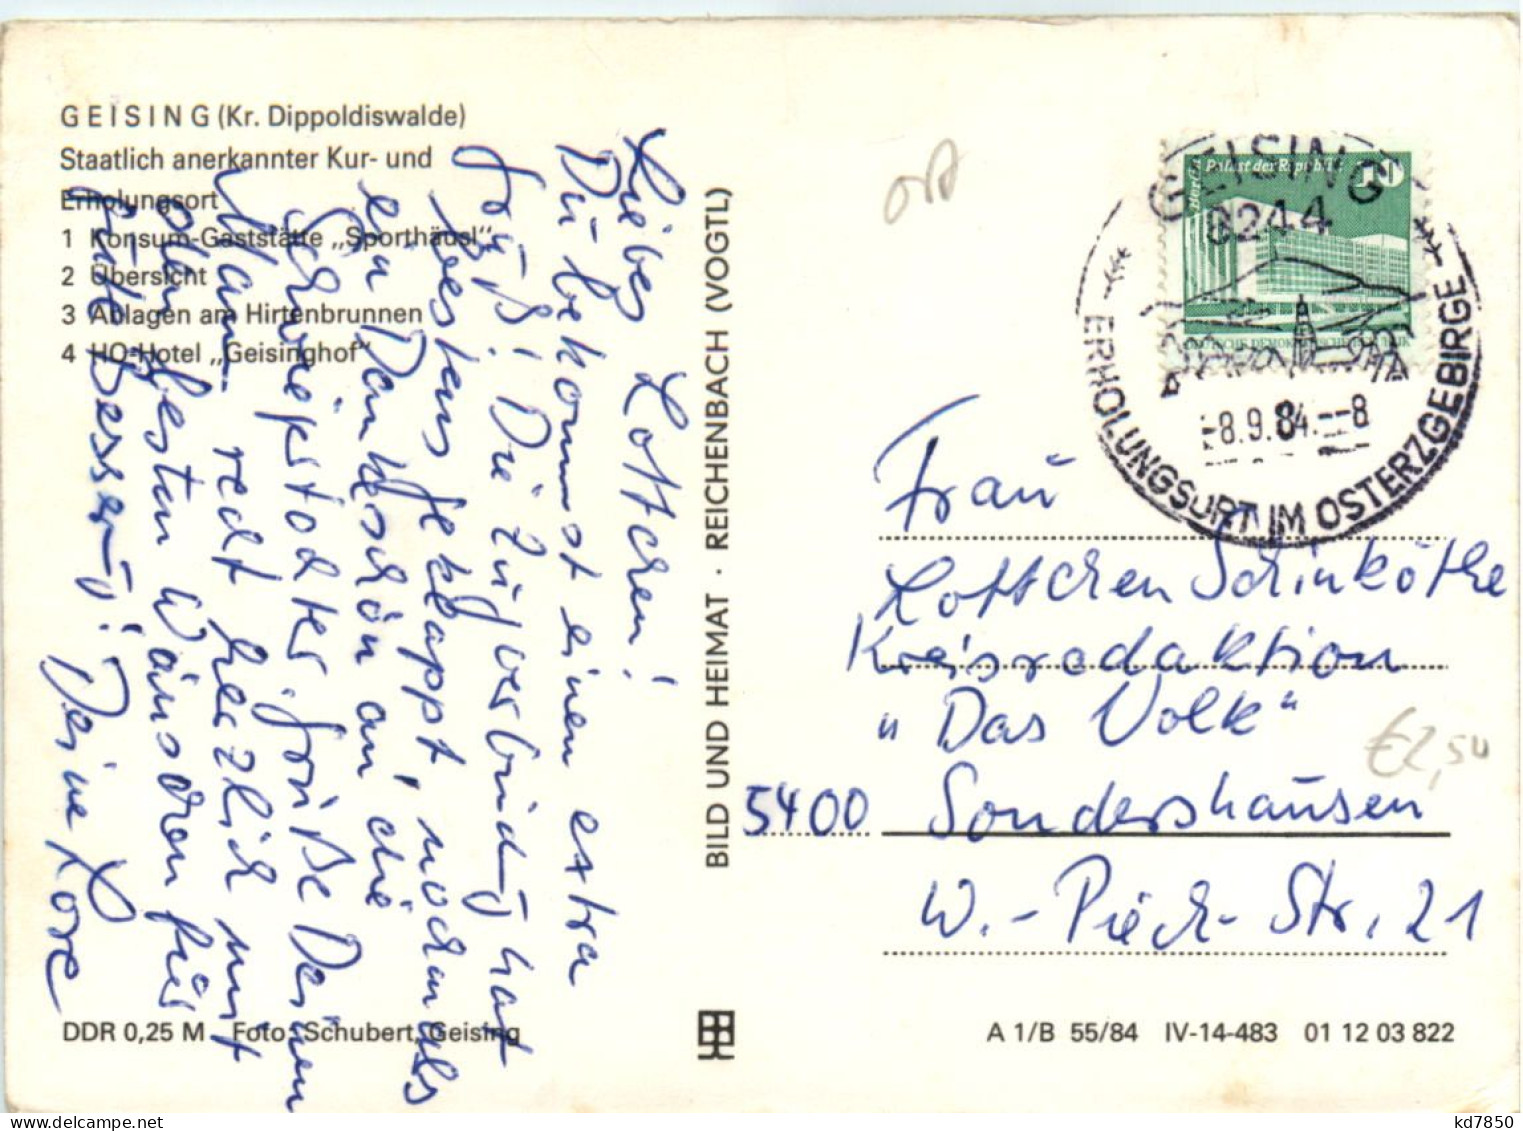 GEISING (Kr. Dippoldiswalde)
Staatlich anerkannter Kur- und
Erholungsort
1 Konsum-Gaststätte „Sporthäusl"
2 Übersicht
3 Ablagen am Hirtenbrunnen
4 HO-Hotel „Geisinghof"
Liebes Lottchen!
Du bekommst einen extra
Gruß! Die Zugverbindung hat
bestens geklappt, nochmals
ein Dankeschön an die
Schwiegertochter. Grüße Deinen
Mann recht herzlich mit
den besten Wünschen für
gute Besserung! Deine Lore
DDR 0,25 M Foto: Schubert, Geising
BILD UND HEIMAT · REICHENBACH (VOGTL)
Berlin Palast der Republik
DEUTSCHE DEMOKRATISCHE REPUBLIK
GEISING
8244
-8.9.84.--8
ERHOLUNGSORT IM OSTERZGEBIRGE
Frau
Lottchen Schinköthe
Kreisredaktion
„Das Volk"
5400 Sondershausen
W.-Pieck-Str. 21
€2,50
A 1/B 55/84 IV-14-483 01 12 03 822
kd7850